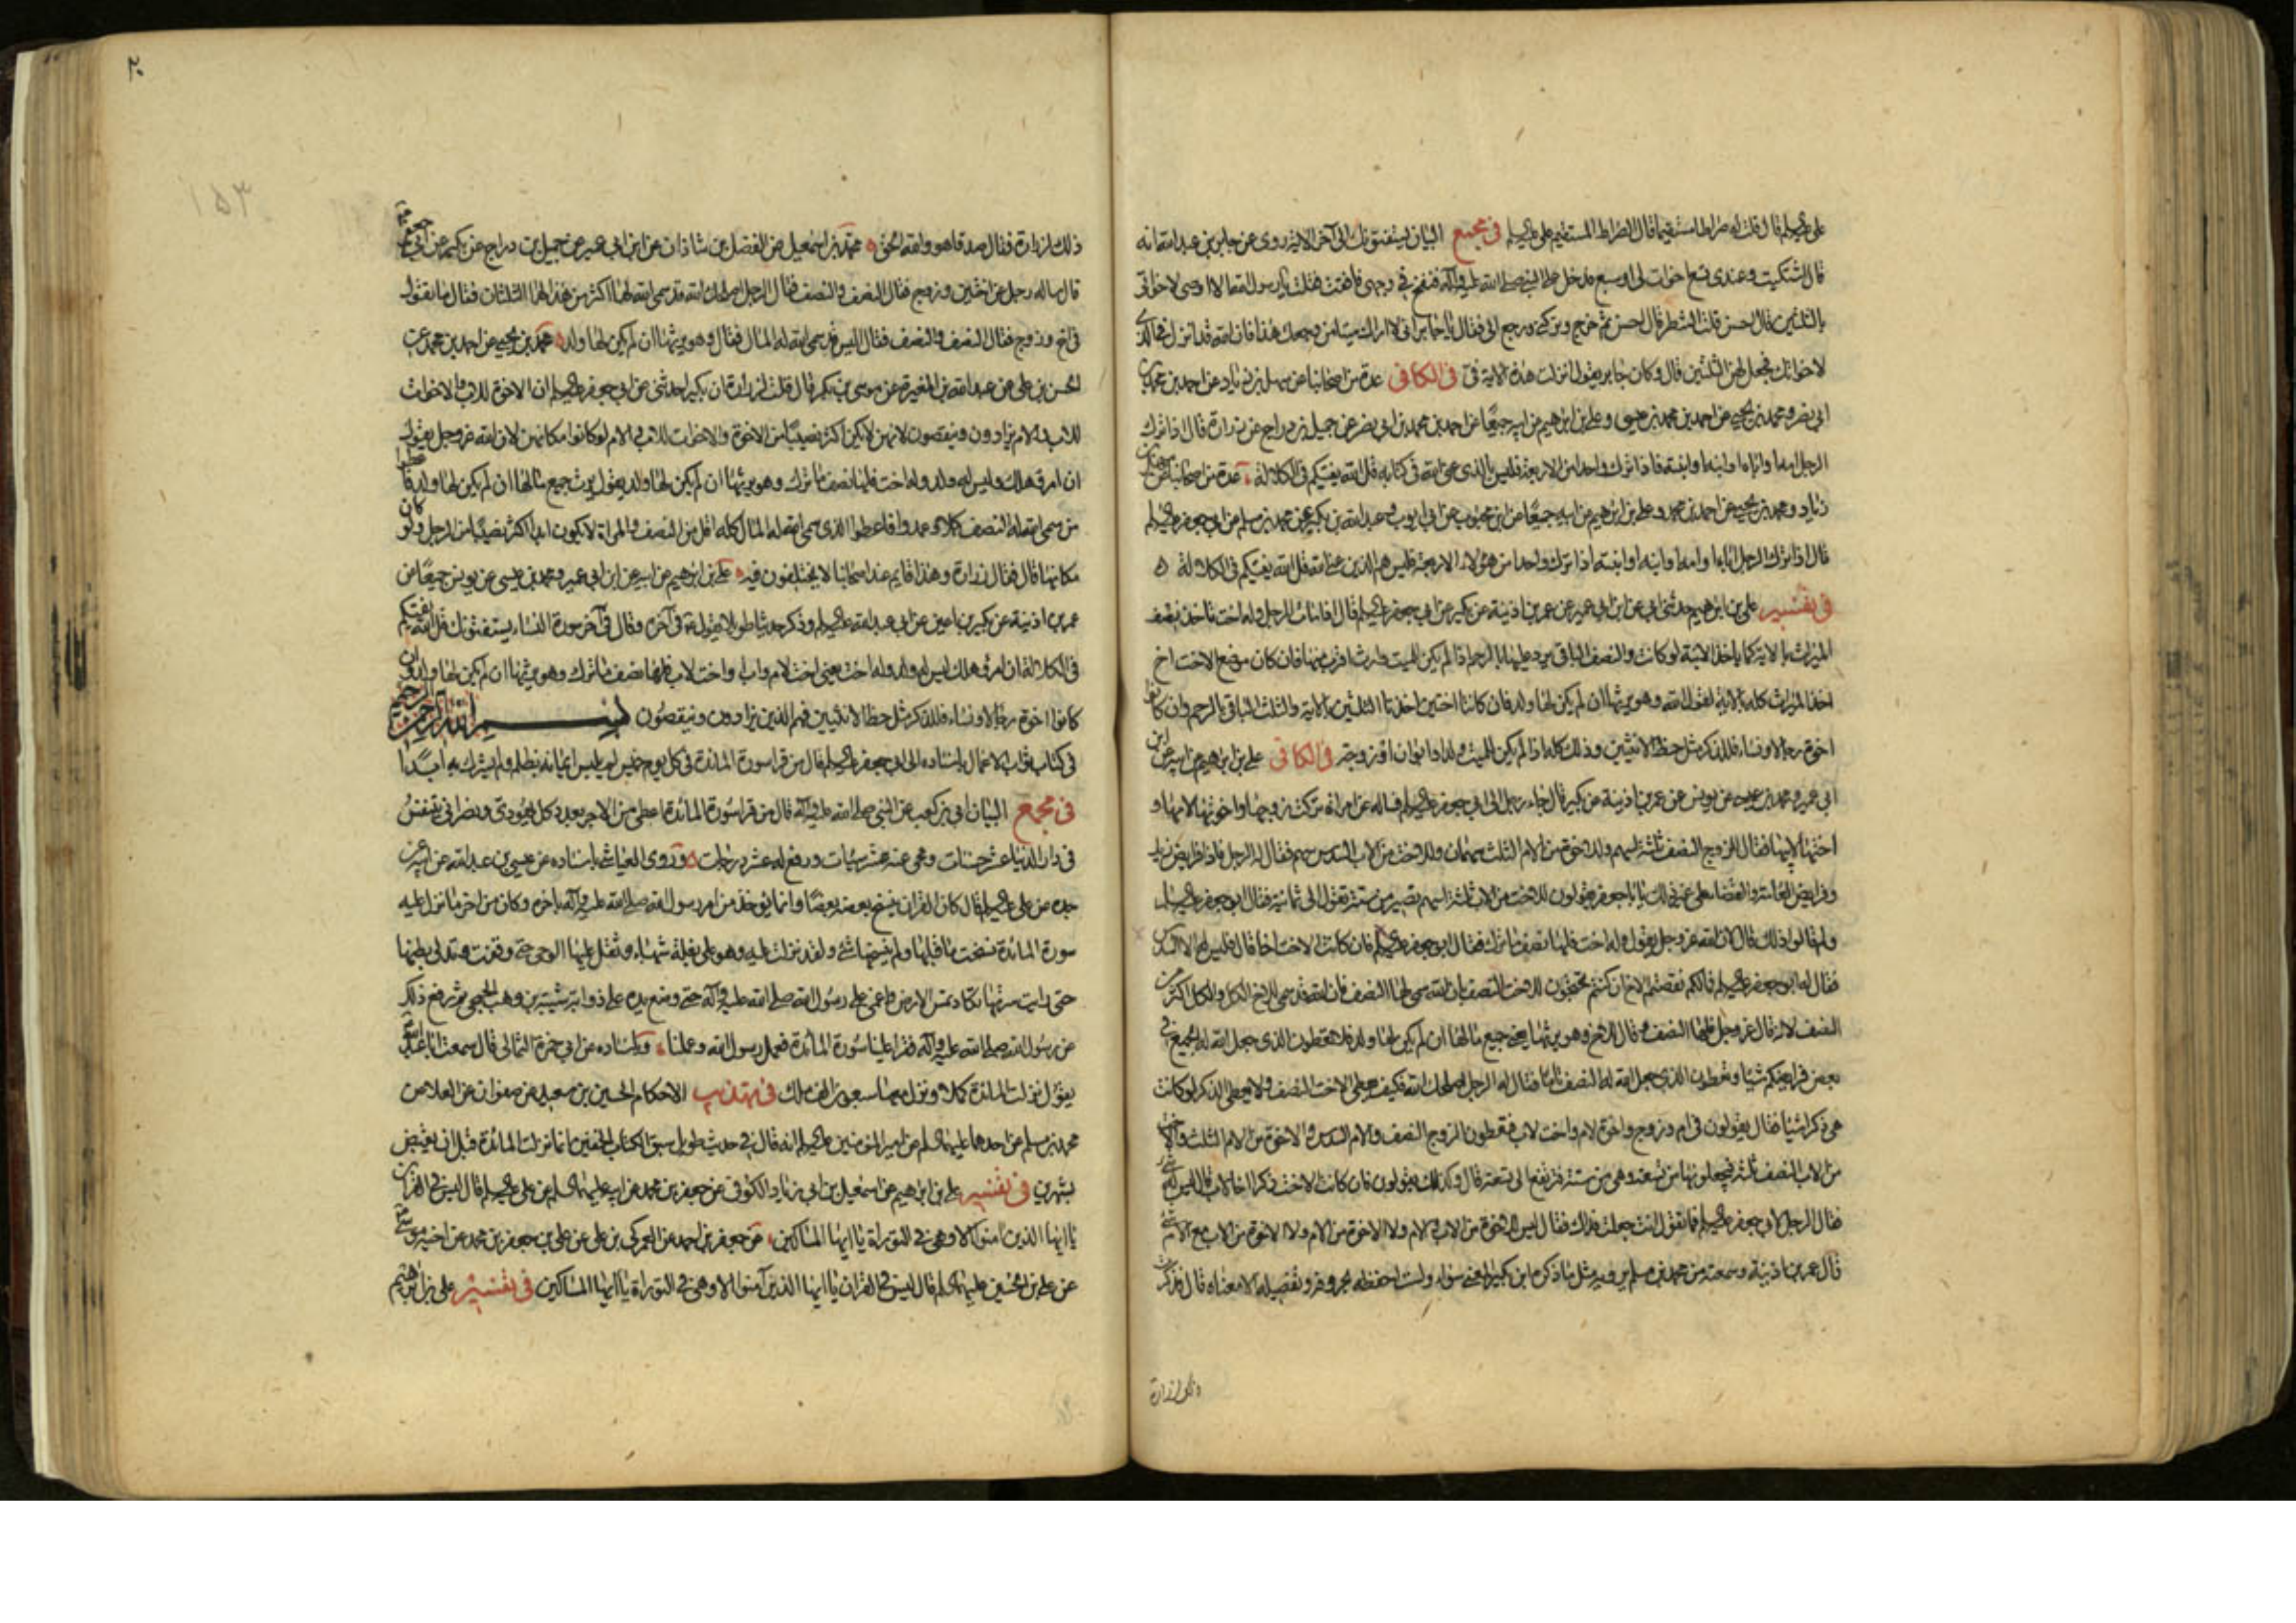 على عليه السلام قال قلت له صراطا مستقيما قال الصراط المستقيم على عليه السلام في مجمع البيان يستفتونك الى آخر الاية روى عن جابر بن عبد الله انه
قال اشتكيت وعندى تسع اخوات لى او سبع فدخل على النبى صلى الله عليه وآله فنفخ فى وجهى فافقت فقلت يا رسول الله الا اوصى لاخواتى
بالثلثين قال احسن قلت الشطر قال احسن ثم خرج وتركنى ورجع الى فقال يا جابر انى لا اراك ميتا من وجعك هذا فان الله قد انزل فى الذى
لاخواتك فجعل لهن الثلثين قال وكان جابر يقول انزلت هذه الاية فى في الكافي عدة من اصحابنا عن سهل بن زياد عن احمد بن محمد بن
ابى نصر ومحمد بن يحيى عن احمد بن محمد بن عيسى وعلى بن ابرهيم عن ابيه جميعا عن احمد بن محمد بن ابى نصر عن جميل بن دراج عن زرارة قال اذا ترك
الرجل امه او اباه او ابنه او ابنته فاذا ترك واحدا من الاربعة فليس بالذى عنى الله فى كتابه قل الله يفتيكم فى الكلالة عدة من اصحابنا عن سهل بن
زياد ومحمد بن يحيى عن احمد بن محمد وعلى بن ابرهيم عن ابيه جميعا عن ابن محبوب عن ابى ايوب وعبد الله بن بكير عن محمد بن مسلم عن ابى جعفر عليه السلام
قال اذا ترك الرجل اباه او امه او ابنه او ابنته اذا ترك واحدا من هؤلاء الاربعة فليس هم الذين عنى الله قل الله يفتيكم فى الكلالة ه
في تفسير على بن ابرهيم حدثنى ابى عن ابن ابى عمير عن عمر بن اذينة عن بكير عن ابى جعفر عليه السلام قال اذا مات الرجل وله اخت تاخذ نصف
الميراث بالاية كما تاخذ الابنة لو كانت والنصف الباقى يرد عليها بالرحم اذا لم يكن للميت وارث اقرب منها فان كان موضع الاخت اخ
اخذ الميراث كله بالاية لقول الله وهو يرثها ان لم يكن لها ولد فان كانتا اختين اخذتا الثلثين بالاية والثلث الباقى بالرحم وان كانوا
اخوة رجالا ونساء فللذكر مثل حظ الانثيين وذلك كله اذا لم يكن للميت ولد او ابوان او زوجة في الكافي على بن ابرهيم عن ابيه عن ابن
ابى عمير ومحمد بن عيسى عن يونس عن عمر بن اذينة عن بكير قال جاء رجل الى ابى جعفر عليه السلام فساله عن امراة تركت زوجها واخوتها لامها و
اختها لابيها فقال للزوج النصف ثلثة اسهم وللاخوة من الام الثلث سهمان وللاخت من الاب السدس سهم فقال له الرجل فان فرايض زيد
وفرايض العامة والقضاة على غير ذلك يا با جعفر يقولون للاخت من الاب ثلثة اسهم تصير من ستة تعول الى ثمانية فقال ابو جعفر عليه السلام
ولم قالوا ذلك قال لان الله عز وجل يقول وله اخت فلها نصف ما ترك فقال ابو جعفر عليه السلام فان كانت الاخت اخا قال فليس له الا السدس
فقال له ابو جعفر عليه السلام فما لكم نقصتم الاخ ان كنتم تحتجون للاخت النصف بان الله سمى لها النصف فان الله قد سمى للاخ الكل والكل اكثر من
النصف لانه قال عز وجل فلها النصف وقال للاخ وهو يرثها يعنى جميع مالها ان لم يكن لها ولد فلا تعطون الذى جعل الله له الجميع فى
بعض فرايضكم شيئا وتعطون الذى جعل الله له النصف تاما فقال له الرجل اصلحك الله فكيف نعطى الاخت النصف ولا يعطى الذكر لو كانت
هى ذكرا شيئا فقال يقولون فى ام وزوج واخوة لام واخت لاب فيعطون الزوج النصف والام السدس والاخوة من الام الثلث والاخت
من الاب النصف ثلثة فيجعلونها من تسعة وهى من ستة فترتفع الى تسعة قال وكذلك يقولون فان كانت الاخت ذكرا اخا لاب قال ليس له شئ
فقال الرجل لابى جعفر عليه السلام فما تقول انت جعلت فداك فقال ليس للاخوة من الاب والام ولا الاخوة من الام ولا الاخوة من الاب مع الام شئ
قال عمر بن اذينة وسمعته من محمد بن مسلم يرويه مثل ما ذكر بكير المعنى سواء ولست احفظه بحروفه وتفصيله الا معناه قال فذكرت
ذلك لزرارة
٢٠
١٥٣
ذلك لزرارة فقال صدقا هو والله الحق محمد بن اسمعيل عن الفضل بن شاذان عن ابن ابى عمير عن جميل بن دراج عن بكير عن ابى جعفر
قال ساله رجل عن اختين وزوج فقال النصف والنصف فقال الرجل اصلحك الله قد سمى الله لهما اكثر من هذا لهما الثلثان فقال ما تقول
فى اخ وزوج فقال النصف والنصف فقال اليس قد سمى الله له المال فقال وهو يرثها ان لم يكن لها ولد محمد بن يحيى عن احمد بن محمد عن
الحسن بن على عن عبد الله بن المغيرة عن موسى بن بكر قال قلت لزرارة ان بكيرا حدثنى عن ابى جعفر عليه السلام ان الاخوة للاب والاخوات
للاب والام يزادون وينقصون لانهن لا يكن اكثر نصيبا من الاخوة والاخوات للاب والام لو كانوا مكانهن لان الله عز وجل يقول
ان امرؤ هلك وليس له ولد وله اخت فلها نصف ما ترك وهو يرثها ان لم يكن لها ولد يقول يرث جميع مالها ان لم يكن لها ولد فاعطوا
من سمى الله له النصف كملا وعمدوا فاعطوا الذى سمى الله له المال كله اقل من النصف والمراة لا يكون ابدا اكثر نصيبا من رجل ولو كان
مكانها قال فقال زرارة وهذا قايم عند اصحابنا لا يختلفون فيه على بن ابرهيم عن ابيه عن ابن ابى عمير ومحمد بن عيسى عن يونس جميعا عن
عمر بن اذينة عن بكير بن اعين عن ابى عبد الله عليه السلام وذكر حديثا طويلا يقول فى آخره وقال فى آخر سورة النساء يستفتونك قل الله يفتيكم
فى الكلالة ان امرؤ هلك ليس له ولد وله اخت يعنى اخت لام واب او اخت لاب فلها نصف ما ترك وهو يرثها ان لم يكن لها ولد وان
كانوا اخوة رجالا ونساء فللذكر مثل حظ الانثيين فهم الذين يزادون وينقصون بسم الله الرحمن الرحيم
فى كتاب ثواب الاعمال باسناده الى ابى جعفر عليه السلام قال من قرا سورة المائدة فى كل يوم خميس لم يلبس ايمانه بظلم ولم يشرك به ابدا
في مجمع البيان ابى بن كعب عن النبى صلى الله عليه وآله قال من قرا سورة المائدة اعطى من الاجر بعدد كل يهودى ونصرانى يتنفس
فى دار الدنيا عشر حسنات ومحى عنه عشر سيئات ورفع له عشر درجات وروى العياشى باسناده عن عيسى بن عبد الله عن ابيه عن
جده عن على عليه السلام قال كان القران ينسخ بعضه بعضا وانما يؤخذ من امر رسول الله صلى الله عليه وآله باخره وكان من اخر ما نزل عليه
سورة المائدة نسخت ما قبلها ولم ينسخها شئ ولقد نزلت عليه وهو على بغلة شهباء وثقل عليها الوحى حتى وقفت وتدلى بطنها
حتى رايت سرتها تكاد تمس الارض واغمى على رسول الله صلى الله عليه وآله حتى وضع يده على ذوابة شيبة بن وهب الجمحى ثم رفع ذلك
عن رسول الله صلى الله عليه وآله فقرا علينا سورة المائدة فعمل رسول الله وعملنا وباسناده عن ابى حمزة الثمالى قال سمعت ابا عبد الله
يقول نزلت المائدة كملا ونزل معها سبعون الف ملك في تهذيب الاحكام الحسين بن سعيد عن صفوان عن العلا عن
محمد بن مسلم عن احدهما عليهما السلام عن امير المؤمنين عليه السلام انه قال فى حديث طويل سبق الكتاب الخفين انما نزلت المائدة قبل ان يقبض
بشهرين في تفسير على بن ابرهيم عن اسمعيل بن ابى زياد الكوفى عن جعفر بن محمد عن ابيه عليهما السلام عن على عليه السلام قال ليس فى القرآن
يا ايها الذين امنوا الا وهى فى التوراة يا ايها المساكين عن جعفر بن احمد عن العمركى بن على عن على بن جعفر بن محمد عن اخيه موسى
عن على بن الحسين عليهما السلام قال ليس فى القران يا ايها الذين آمنوا الا وهى فى التوراة يا ايها المساكين في تفسير على بن ابرهيم